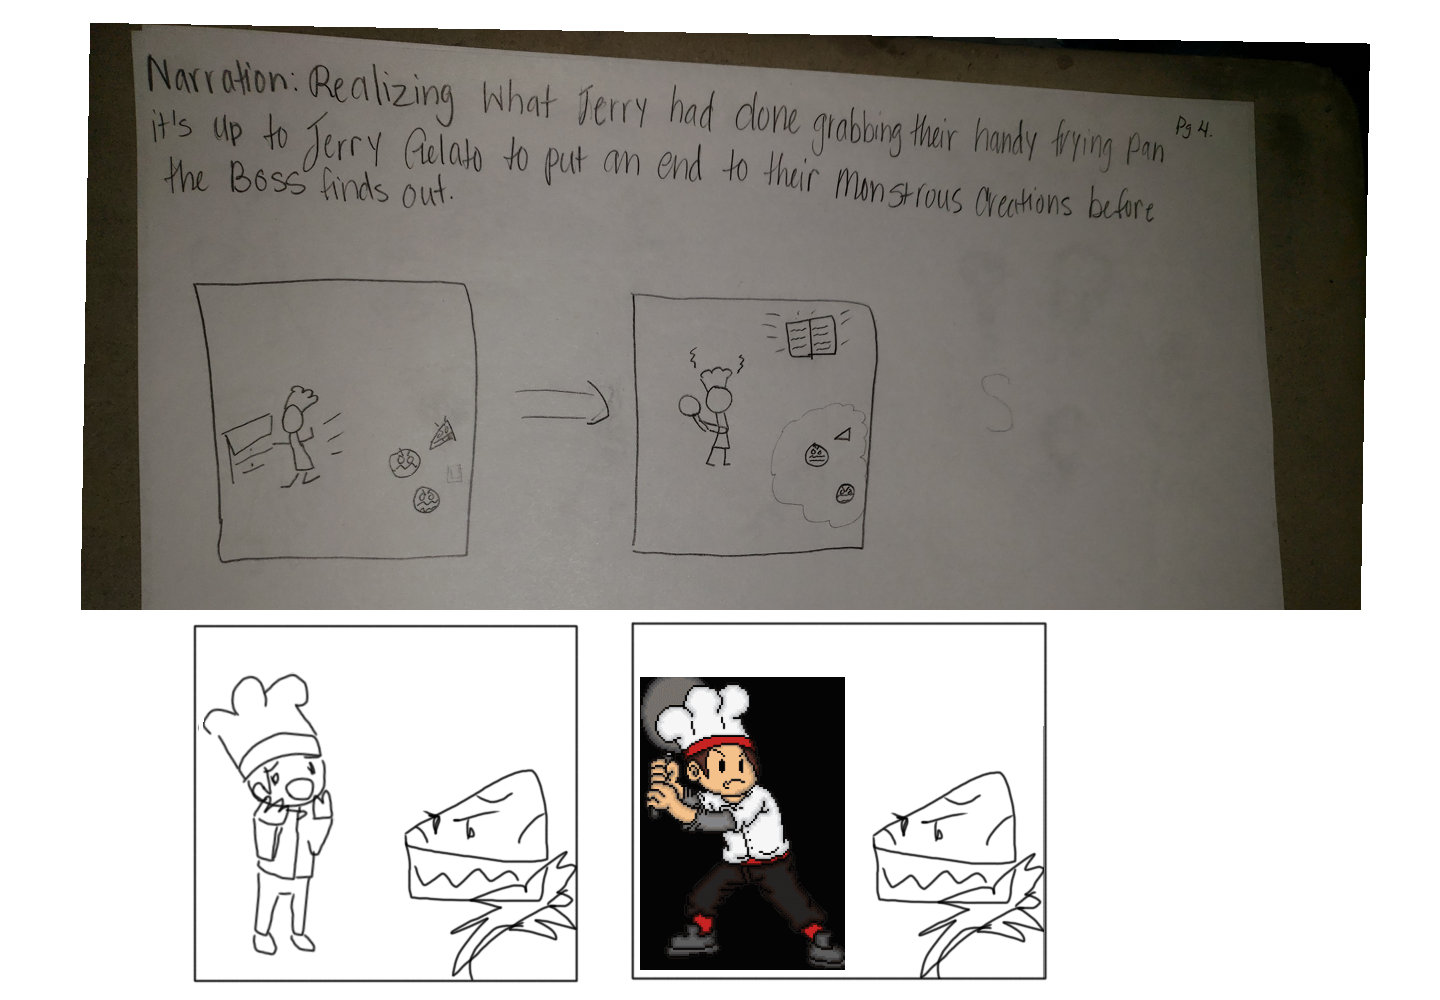 Narration: Realizing what Jerry had done grabbing their handy frying pan
Pg 4.
it's up to Jerry Gelato to put an end to their monstrous creations before
the Boss finds out.
S